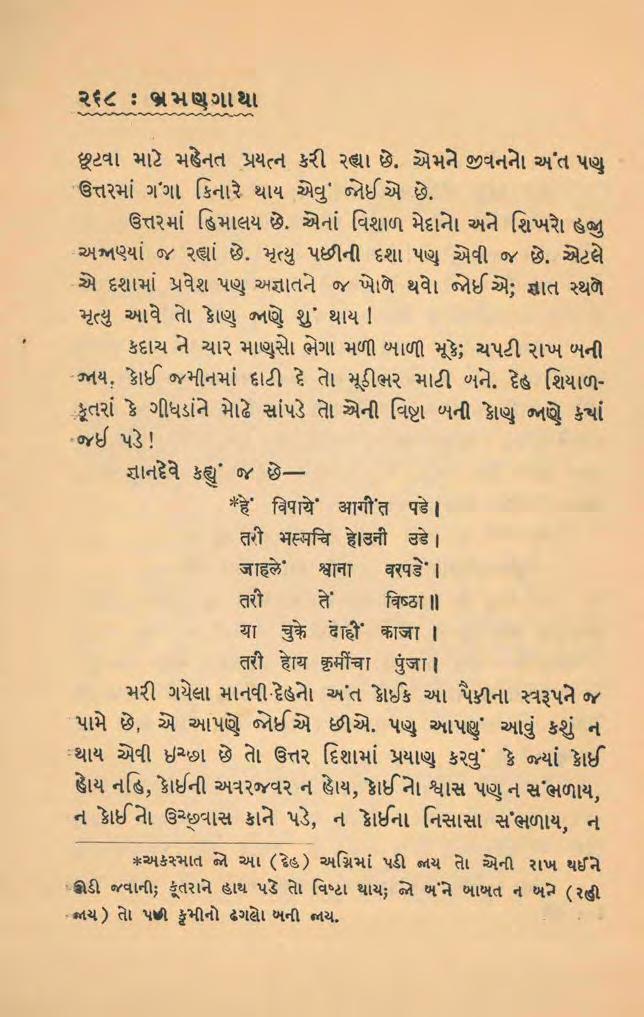 ૨૬૮ : ભ્રમણગાથા
છૂટવા માટે મહેનત પ્રયત્ન કરી રહ્યા છે. એમને જીવનનો અંત પણ
ઉત્તરમાં ગંગા કિનારે થાય એવું જોઈએ છે.
ઉત્તરમાં હિમાલય છે. એનાં વિશાળ મેદાનો અને શિખરો હજી
અજાણ્યાં જ રહ્યાં છે. મૃત્યુ પછીની દશા પણ એવી જ છે. એટલે
એ દશામાં પ્રવેશ પણ અજ્ઞાતને જ ખોળે થવો જોઈએ; જ્ઞાત સ્થળે
મૃત્યુ આવે તો કોણ જાણે શું થાય !
કદાચ ને ચાર માણસો ભેગા મળી બાળી મૂકે; ચપટી રાખ બની
જાય. કોઈ જમીનમાં દાટી દે તો મૂઠીભર માટી બને. દેહ શિયાળ-
કૂતરાં કે ગીધડાંને મોઢે સાંપડે તો એની વિષ્ટા બની કોણ જાણે ક્યાં
જઈ પડે !
જ્ઞાનદેવે કહ્યું જ છે—
*हें विपायें आगींत पडे।
तरी भस्मचि होउनी उडे।
जाहलें श्वाना वरपडें।
तरी तें विष्ठा॥
या चुके दाहीं काजा ।
तरी होय कृमींचा पुंजा।
મરી ગયેલા માનવી દેહનો અંત કોઈક આ પૈકીના સ્વરૂપને જ
પામે છે, એ આપણે જોઈએ છીએ. પણ આપણું આવું કશું ન
થાય એવી ઇચ્છા છે તો ઉત્તર દિશામાં પ્રયાણ કરવું કે જ્યાં કોઈ
હોય નહિ, કોઈની અવરજવર ન હોય, કોઈનો શ્વાસ પણ ન સંભળાય,
ન કોઈનો ઉચ્છ્વાસ કાને પડે, ન કોઈના નિસાસા સંભળાય, ન
*અકસ્માત જો આ (દેહ) અગ્નિમાં પડી જાય તો એની રાખ થઈને
ઊડી જવાની; કૂતરાને હાથ પડે તો વિષ્ટા થાય; જો બંને બાબત ન બને (રહી
જાય) તો પછી કૃમીનો ઢગલો બની જાય.